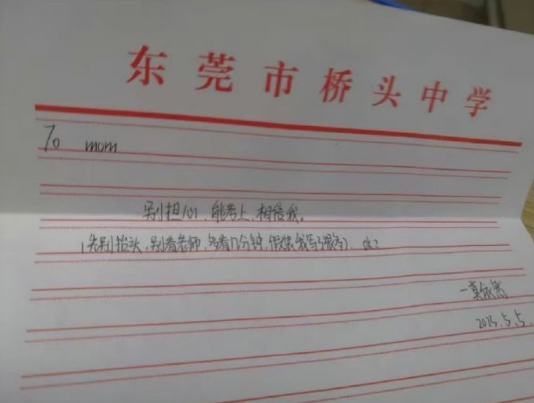 东莞市桥头中学
To mom
别担心、能考上，相信我。
(先别抬头，别看老师，多看几分钟，假装我写了很多). ok?
2023.5.5.